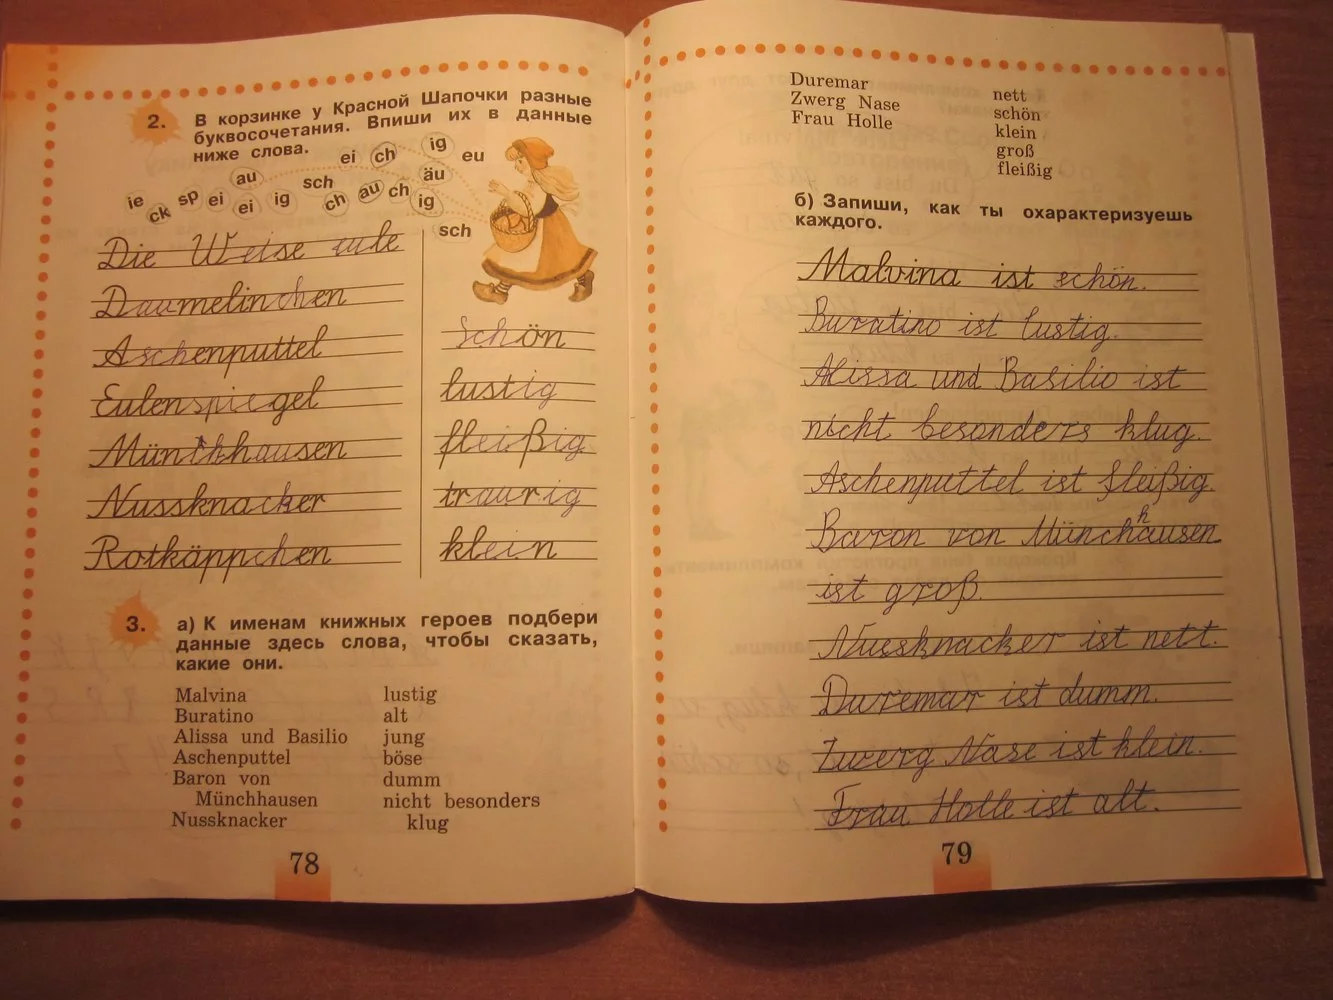 2. В корзинке у Красной Шапочки разные
буквосочетания. Впиши их в данные
ниже слова.
ei ch ig eu
au sch äu
ie ck sp ei ei ig ch au ch ig
sch
Die Weise eule
Daumelinchen
Aschenputtel
Eulenspiegel
Münchhausen
Nussknacker
Rotkäppchen
schön
lustig
fleißig
traurig
klein
3. а) К именам книжных героев подбери
данные здесь слова, чтобы сказать,
какие они.
Malvina lustig
Buratino alt
Alissa und Basilio jung
Aschenputtel böse
Baron von dumm
Münchhausen nicht besonders
Nussknacker klug
78
Duremar nett
Zwerg Nase schön
Frau Holle klein
groß
fleißig
б) Запиши, как ты охарактеризуешь
каждого.
Malvina ist schön.
Buratino ist lustig.
Alissa und Basilio ist
nicht besonders klug.
Aschenputtel ist fleißig.
Baron von Münchhausen
ist groß.
Nussknacker ist nett.
Duremar ist dumm.
Zwerg Nase ist klein.
Frau Holle ist alt.
79